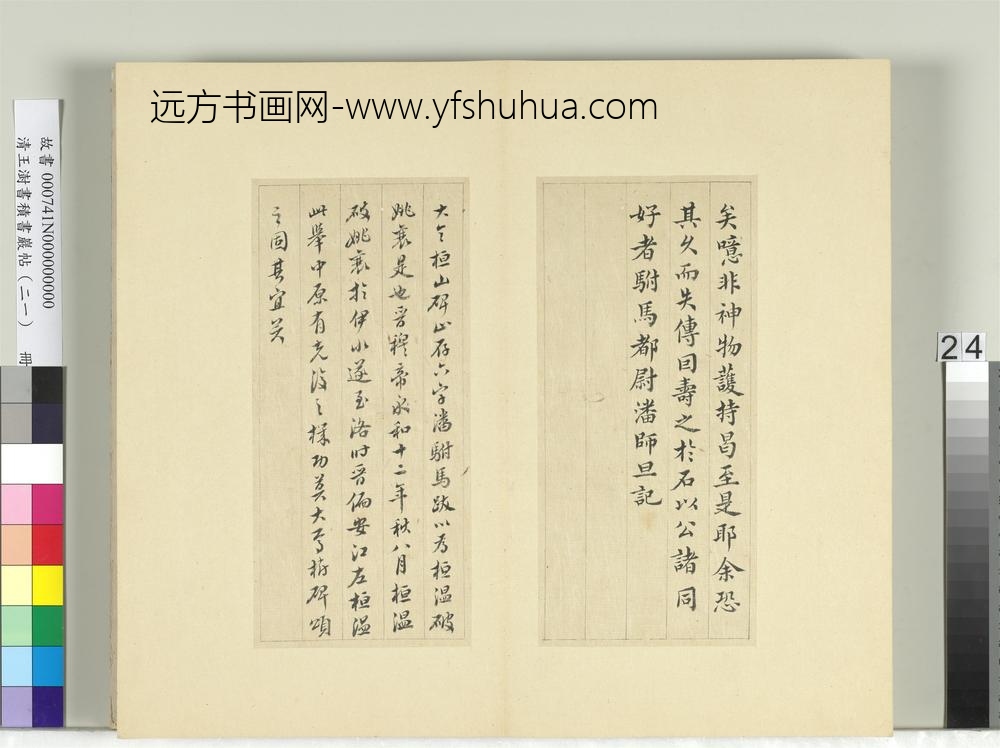 远方书画网-www.yfshuhua.com
故書 000741N000000000
清王澍書積書巖帖(二一) 冊
24
矣噫非神物護持昌至是耶余恐
其久而失傳囙壽之於石以公諸同
好者駙馬都尉潘師旦記
大令桓山碑止存六字潘駙馬跋以為桓温破
姚襄是也晉穆帝永和十二年秋八月桓温
破姚襄於伊水遂至洛時晉偏安江左桓温
此舉中原有克復之機功莫大焉樹碑頌
之固其宜矣